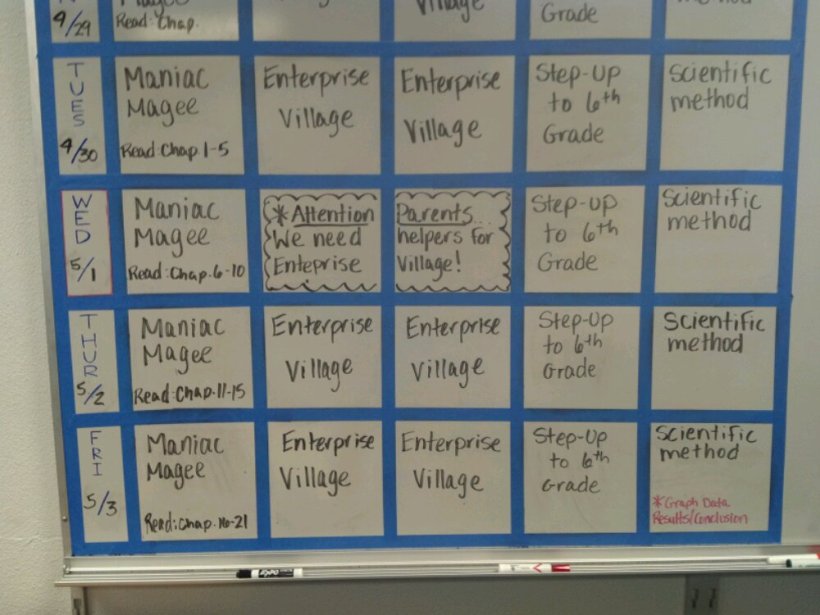 4/29
Magee
Read: Chap.
Village
Grade
method
TUES
4/30
Maniac
Magee
Read: Chap 1-5
Enterprise
Village
Enterprise
Village
Step-Up
to 6th
Grade
Scientific
method
WED
5/1
Maniac
Magee
Read: Chap. 6-10
*Attention
We need
Enteprise
Parents...
helpers for
Village!
Step-Up
to 6th
Grade
Scientific
method
THUR
5/2
Maniac
Magee
Read: Chap. 11-15
Enterprise
Village
Enterprise
Village
Step-Up
to 6th
Grade
Scientific
method
FRI
5/3
Maniac
Magee
Read: Chap. 16-21
Enterprise
Village
Enterprise
Village
Step-Up
to 6th
Grade
Scientific
method
*Graph Data
Results/Conclusion
EXPO